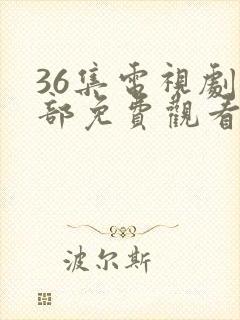 36集電視劇
部免費觀看
波尔斯